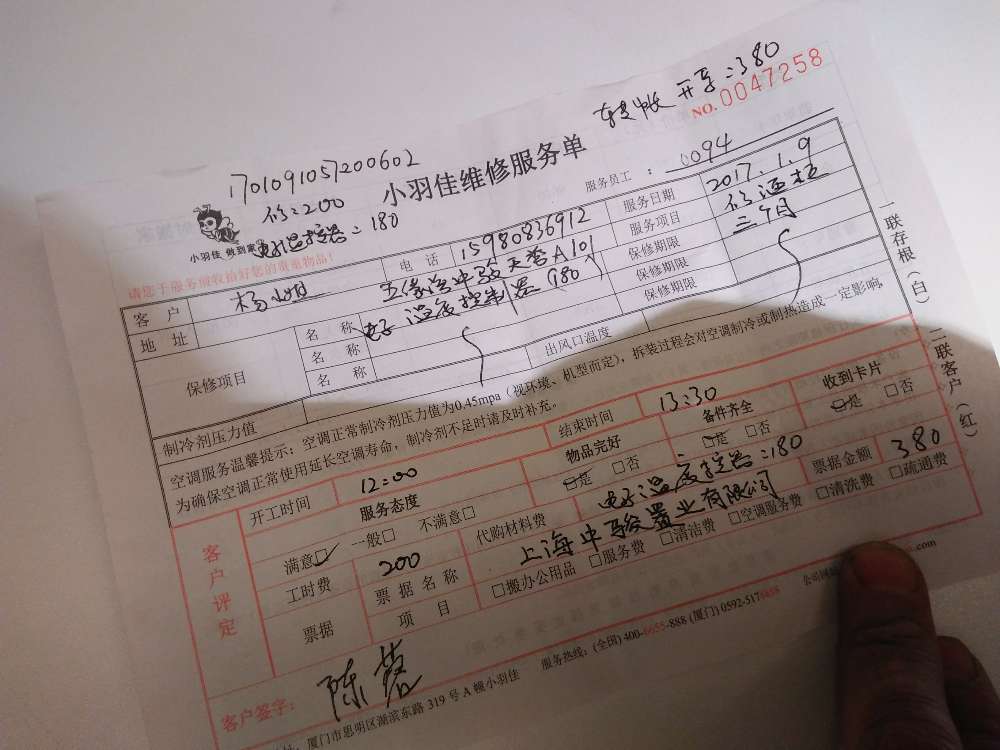 转帐 开票:380
NO.0047258
170109105720602
小羽佳维修服务单
服务员工: 0094
修:200
电子温控器:180
小羽佳 做到家
请您于服务前收拾好您的贵重物品!
客户 杨小姐 电话 15980836912 服务日期 2017.1.9
地址 五缘湾中骏天誉A101 服务项目 修酒柜
保修项目 名称 电子温度控制器 180 保修期限 三个月
名称 保修期限
名称 保修期限
制冷剂压力值 出风口温度
空调服务温馨提示:空调正常制冷剂压力值为0.45mpa(视环境、机型而定),拆装过程会对空调制冷或制热造成一定影响,
为确保空调正常使用延长空调寿命,制冷剂不足时请及时补充。
客户评定
开工时间 12:00 结束时间 13:30
服务态度 物品完好 备件齐全 收到卡片
满意□ 一般□ 不满意□ □是 □否 □是 □否 □是 □否
工时费 200 代购材料费 电子温度控器:180 票据金额 380
票据 票据名称 上海中骏置业有限公司
项目 □搬办公用品 □服务费 □清洁费 □空调服务费 □清洗费 □疏通费
客户签字:
服务热线:(全国) 400-6655-888 (厦门) 0592-5176658
厦门市思明区湖滨东路 319 号 A 幢小羽佳
一联存根(白) 二联客户(红)